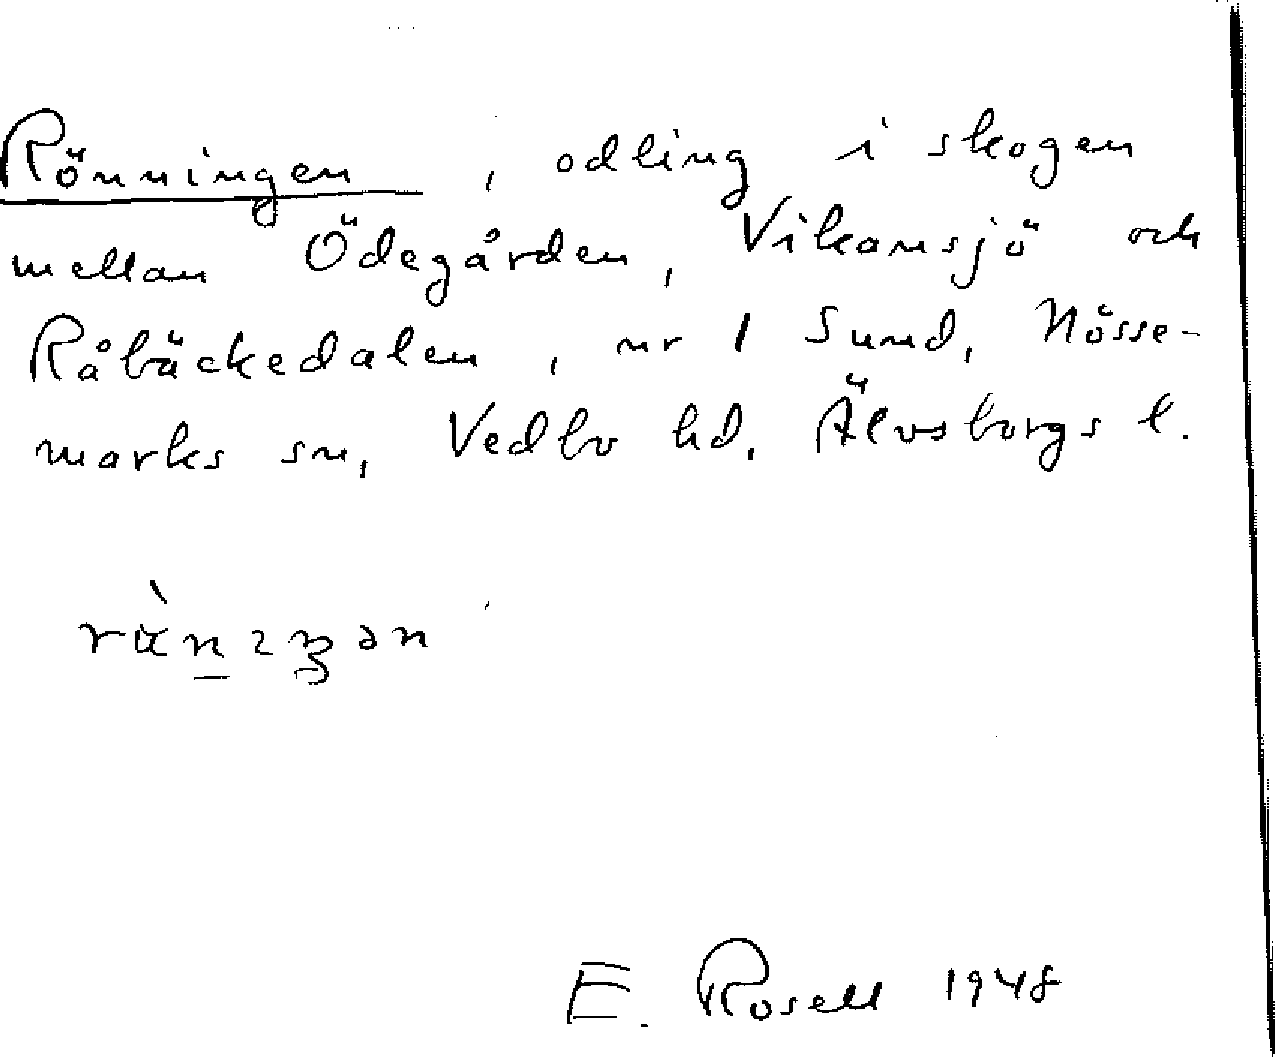 Rönningen, odling i skogen
mellan Ödegården, Vikansjö och
Råbäckedalen, nr 1 Sund, Nösse-
marks sn, Vedbo hd. Älvsborgs l.
E. Rosell 1948